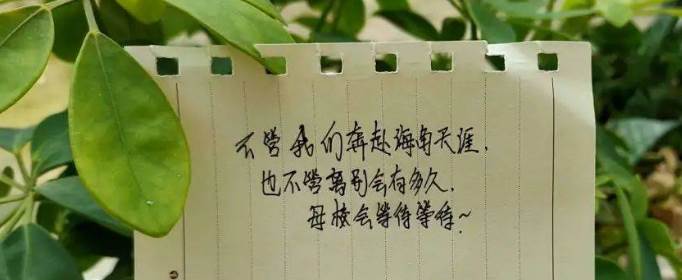 不管我们奔赴海南天涯,
也不管离别会有多久,
母校会等待等待~